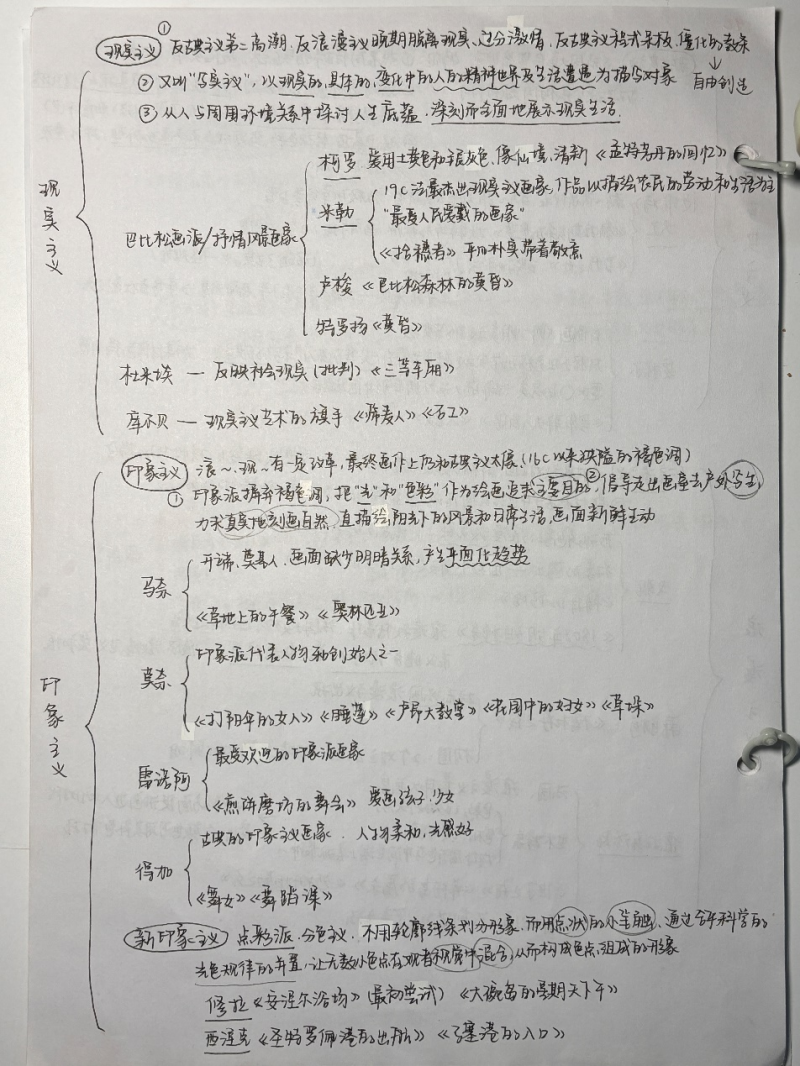 ①
现实主义 反古典主义第二高潮.反浪漫主义晚期脱离现实、过分激情,反古典主义程式呆板、僵化的教条
↓
自由创造
② 又叫"写实主义",以现实的,具体的,变化中的人的精神世界及生活遭遇为描写对象
③ 从人与周围环境关系中探讨人生底蕴.深刻而全面地展示现实生活.
现实主义
巴比松画派/抒情风景画家
柯罗 爱用土黄色和银灰色,像仙境,清新《孟特芳丹的回忆》
米勒
19C法最杰出现实主义画家,作品以描绘农民的劳动和生活为主
"最受人民爱戴的画家"
《拾穗者》平和朴实带着敬意
卢梭《巴比松森林的黄昏》
特罗扬《黄昏》
杜米埃 — 反映社会现实(批判)《三等车厢》
库尔贝 — 现实主义艺术的旗手《筛麦人》《石工》
印象主义
印象主义 浪~、现~有一定改革,最终画作上仍和古典主义太像、(16C以来灰暗的褐色调)
① 印象派摒弃褐色调,把"光"和"色彩"作为绘画追求主要目的,②倡导走出画室去户外写生,
力求真实地刻画自然.直描绘阳光下的风景和日常生活,画面新鲜生动
马奈
开端、奠基人、画面缺少明暗关系,产生平面化趋势
《草地上的午餐》《奥林匹亚》
莫奈
印象派代表人物和创始人之一
《打阳伞的女人》《睡莲》《卢昂大教堂》《花园中的妇女》《草垛》
雷诺阿
最受欢迎的印象派画家
《煎饼磨坊的舞会》 爱画孩子.少女
得加
古典的印象主义画家. 人物柔和,光感好
《舞女》《舞蹈课》
新印象主义 点彩派.分色主义.不用轮廓线条划分形象,而用点状的小笔触,通过合乎科学的
光色规律的并置,让无数小色点在观者视觉中混合,从而构成色点组成的形象
修拉《安涅尔浴场》(最初尝试)《大碗岛的星期天下午》
西涅克《圣特罗佩港的出航》《马赛港的入口》